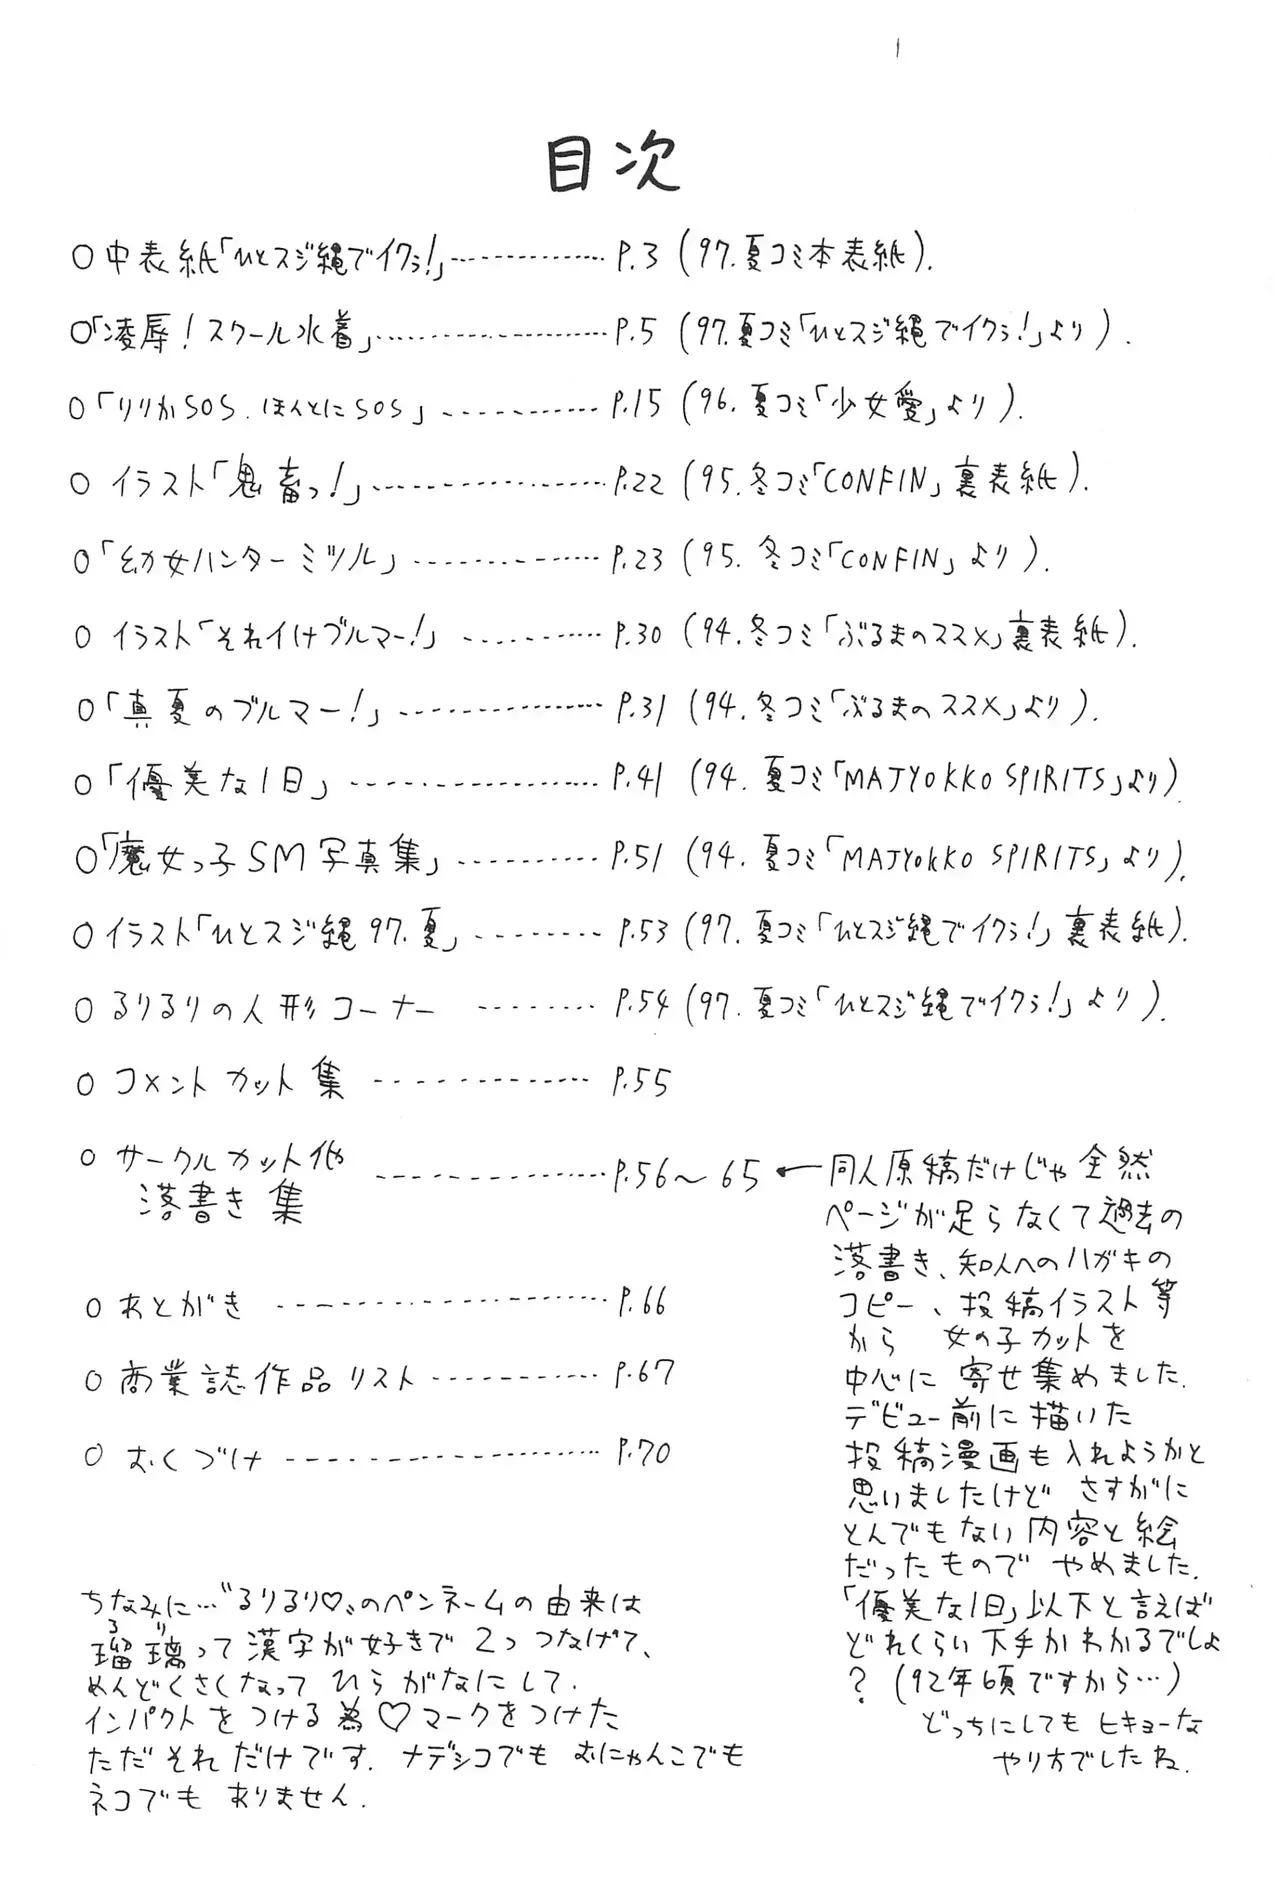 目次
○中表紙「ひとスジ縄でイクぅ!」 P.3 (97.夏コミ本表紙).
○「凌辱!スクール水着」 P.5 (97.夏コミ「ひとスジ縄でイクぅ!」より).
○「りりかSOS.ほんとにSOS」 P.15 (96.夏コミ「少女愛」より).
○イラスト「鬼畜っ!」 P.22 (95.冬コミ「CONFIN」裏表紙).
○「幼女ハンターミツル」 P.23 (95.冬コミ「CONFIN」より).
○イラスト「それイけブルマー!」 P.30 (94.冬コミ「ぶるまのススメ」裏表紙).
○「真夏のブルマー!」 P.31 (94.冬コミ「ぶるまのススメ」より).
○「優美な1日」 P.41 (94.夏コミ「MAJYOKKO SPIRITS」より).
○「魔女っ子SM写真集」 P.51 (94.夏コミ「MAJYOKKO SPIRITS」より).
○イラスト「ひとスジ縄97.夏」 P.53 (97.夏コミ「ひとスジ縄でイクぅ!」裏表紙).
○るりるりの人形コーナー P.54 (97.夏コミ「ひとスジ縄でイクぅ!」より).
○コメントカット集 P.55
○サークルカット他
落書き集 P.56〜65
←同人原稿だけじゃ全然
ページが足らなくて過去の
落書き、知人へのハガキの
コピー、投稿イラスト等
から 女の子カットを
中心に寄せ集めました.
デビュー前に描いた
投稿漫画も入れようかと
思いましたけど さすがに
とんでもない内容と絵
だったもので やめました.
「優美な1日」以下と言えば
どれくらい下手かわかるでしょ
? (92年頃ですから…)
どっちにしてもヒキョーな
やり方でしたね.
○あとがき P.66
○商業誌作品リスト P.67
○おくづけ P.70
ちなみに…"るりるり♡"のペンネームの由来は
瑠璃って漢字が好きで2つつなげて、
るり
めんどくさくなってひらがなにして.
インパクトをつける為♡マークをつけた
ただそれだけです. ナデシコでも おにゃんこでも
ネコでも ありません.